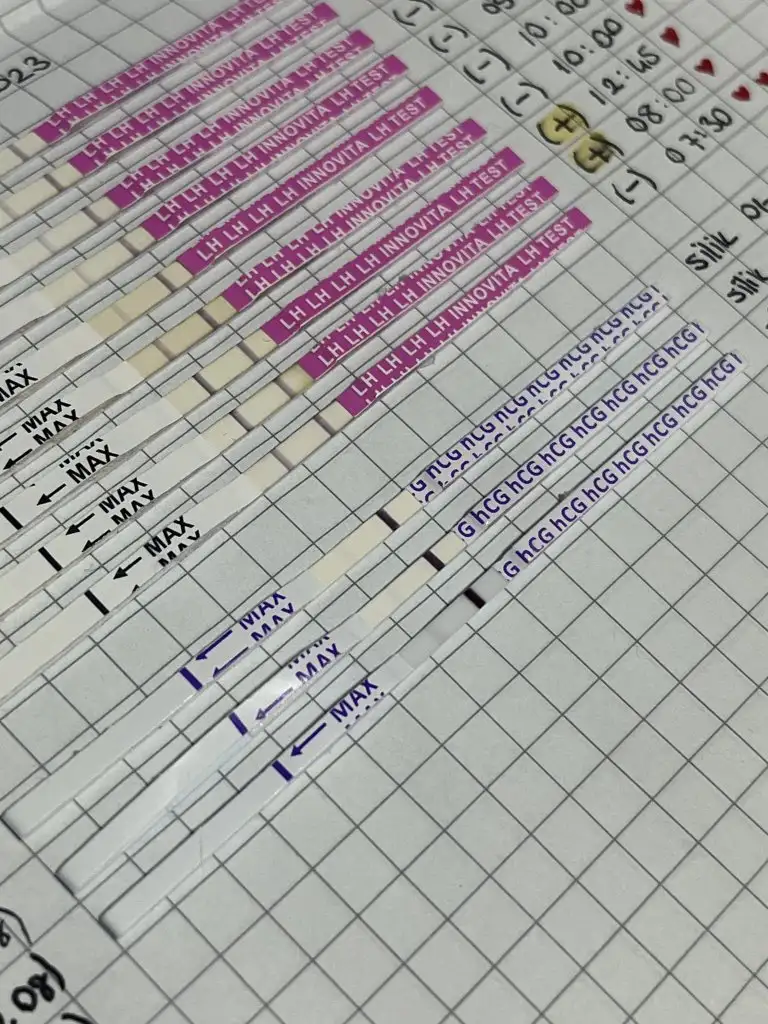 023
LH LH LH LH INNOVITA LH TEST (-)
LH LH LH LH INNOVITA LH TEST (-)
LH LH LH LH INNOVITA LH TEST (-) 10:00
LH LH LH LH INNOVITA LH TEST (-) 10:00
MAX LH LH LH LH INNOVITA LH TEST (+) 12:45
← MAX LH LH LH LH INNOVITA LH TEST (+) 08:00
← MAX LH LH LH LH INNOVITA LH TEST (-) 07:30
← MAX LH LH LH LH INNOVITA LH TEST
← MAX LH LH LH LH INNOVITA LH TEST silik
← MAX hCG hCG hCG hCG hCG hCG silik
← MAX G hCG hCG hCG hCG hCG hCG
← MAX G hCG hCG hCG hCG hCG hCG